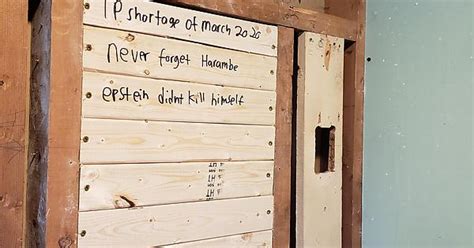 TP shortage of march 2020
never forget Harambe
epstein didnt kill himself